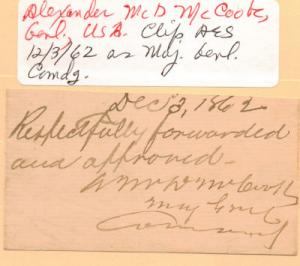 Alexander McD McCook,
Genl, USA. Clip AES
12/3/62 as Maj. Genl.
Comdg.
Dec 3, 1862
Respectfully forwarded
and approved -
A McD McCook
Maj Genl